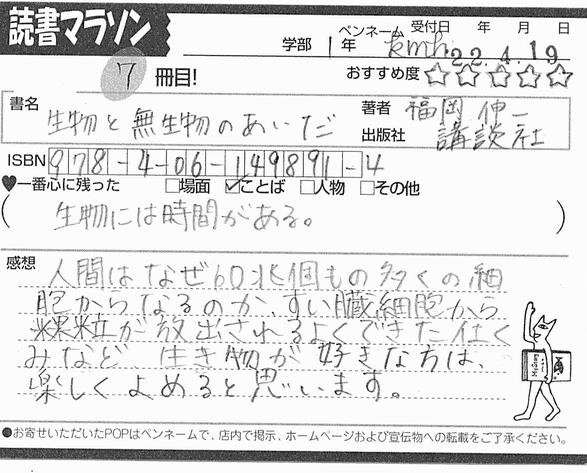 読書マラソン
学部 1年 ペンネーム kmh 受付日 年 月 日
22.4.19
7 冊目! おすすめ度 ☆☆☆☆☆
書名 生物と無生物のあいだ
著者 福岡伸一
出版社 講談社
ISBN 978-4-06-149891-4
♥一番心に残った □場面 ☑ことば □人物 □その他
( 生物には時間がある。 )
感想 人間はなぜ60兆個もの多くの細
胞からなるのか、すい臓細胞から
米粒が放出されるよくできた仕く
みなど、生き物が好きな方は、
楽しくよめると思います。
●お寄せいただいたPOPはペンネームで、店内で掲示、ホームページおよび宣伝物への転載をご了承ください。